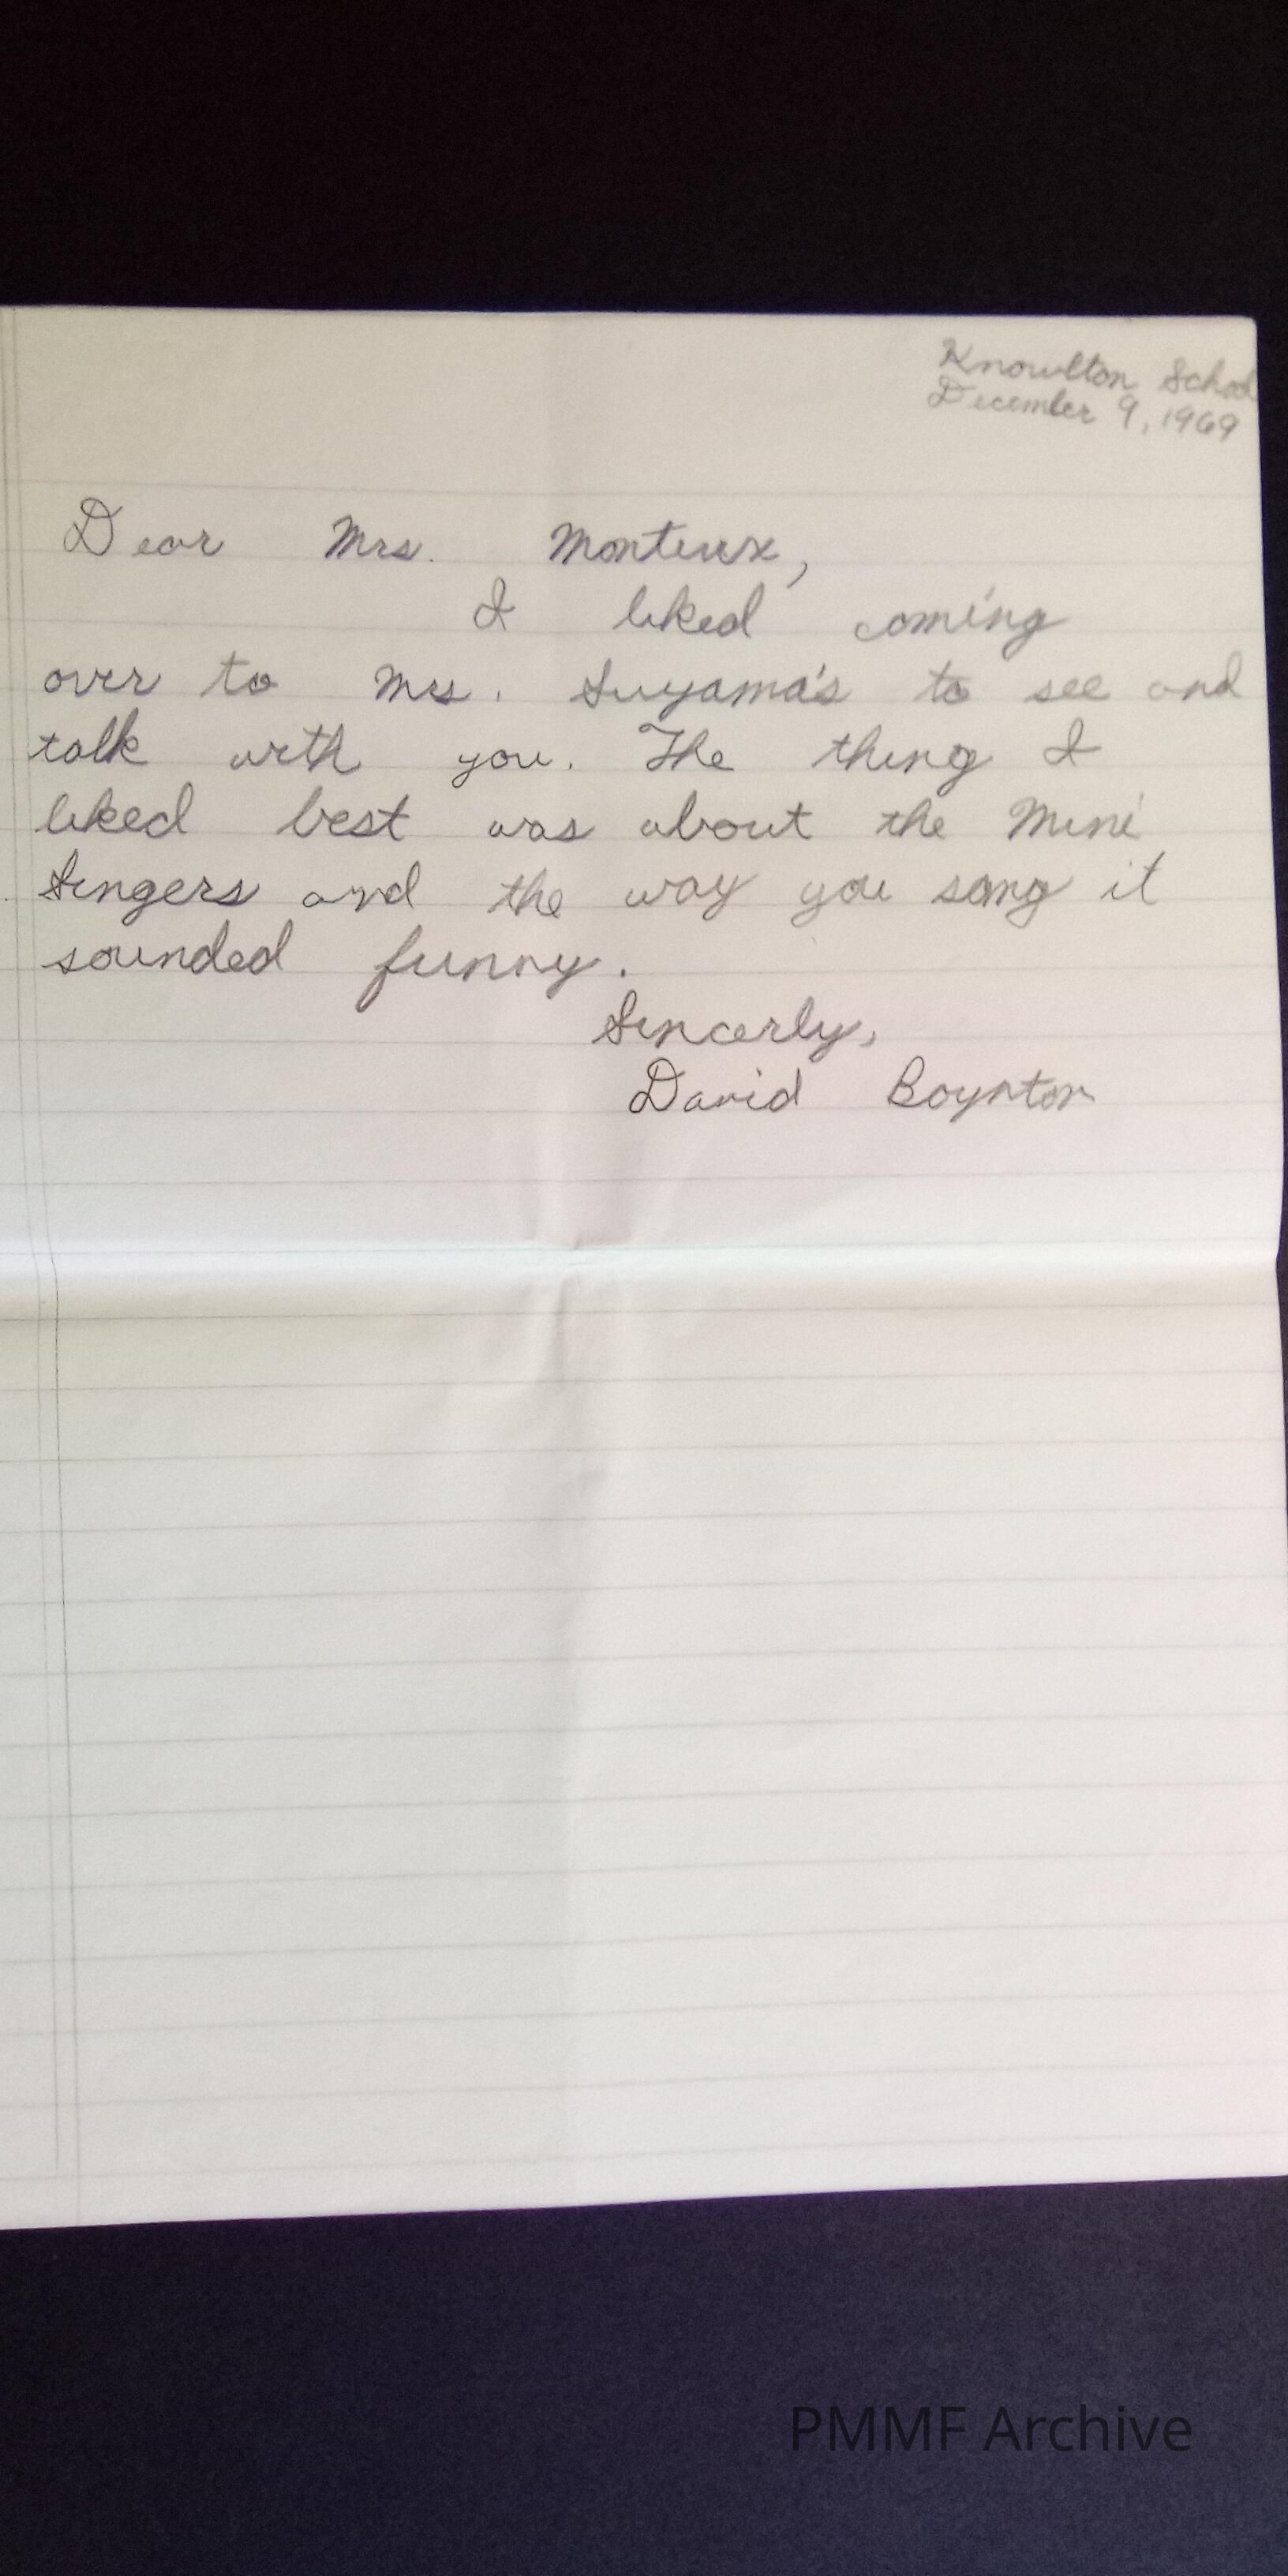 Knowlton School
December 9, 1969
Dear Mrs. Monteux,
I liked coming
over to Mrs. Suyama's to see and
talk with you. The thing I
liked best was about the Mini
Singers and the way you sang it
sounded funny.
Sincerly,
David Boynton
PMMF Archive